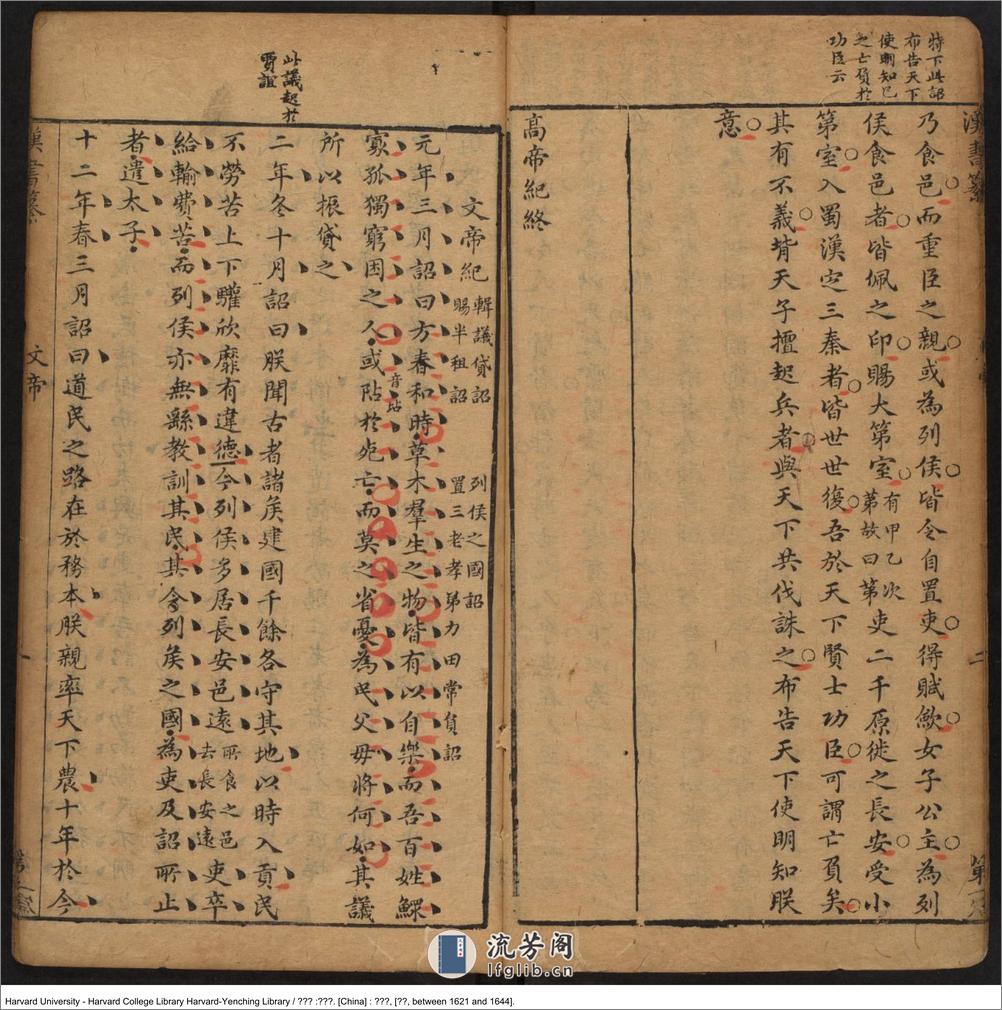 特下此詔
布告天下
使明知已
之亡負於
功臣云
漢書纂
二
乃食邑而重臣之親或為列侯皆令自置吏得賦斂女子公主為列
侯食邑者皆佩之印賜大第室有甲乙次第故曰第吏二千原徙之長安受小
第室入蜀漢定三秦者皆世世復吾於天下賢士功臣可謂亡負矣
其有不義背天子擅起兵者與天下共伐誅之布告天下使明知朕
意
高帝紀終
此議起於
賈誼
文帝紀
輯議貸詔
賜半租詔
列侯之國詔
置三老孝弟力田常負詔
元年三月詔曰方春和時草木羣生之物皆有以自樂而吾百姓鰥
寡孤獨窮困之人或阽於死亡而莫之省憂為民父母將何如其議
音坫
所以振貸之
二年冬十月詔曰朕聞古者諸矦建國千餘各守其地以時入貢民
不勞苦上下驩欣靡有違德今列侯多居長安邑遠所食之邑去長安遠吏卒
給輸費苦而列侯亦無繇教訓其民其令列矦之國為吏及詔所止
者遣太子
十二年春三月詔曰道民之路在於務本朕親率天下農十年於今
漢書纂
文帝
一
流芳阁
lfglib.cn
Harvard University - Harvard College Library Harvard-Yenching Library / ??? :???. [China] : ???, [??, between 1621 and 1644].